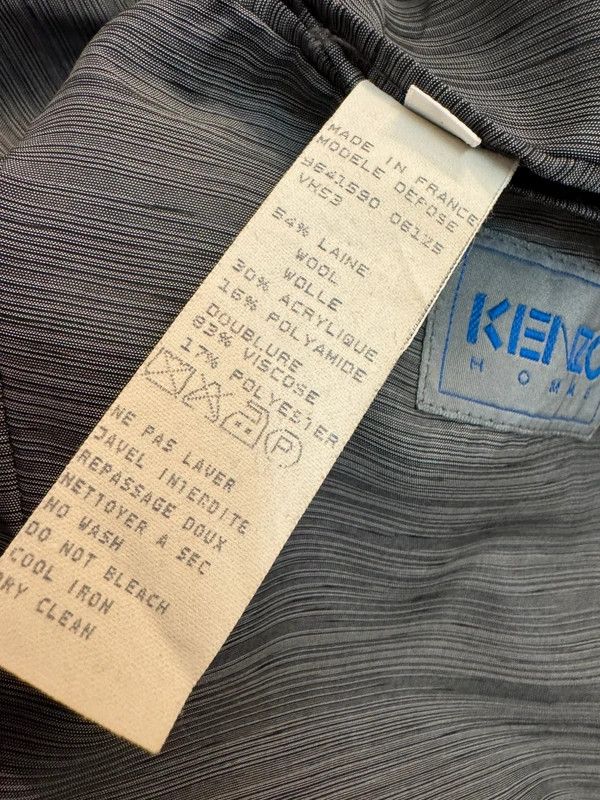 MADE IN FRANCE
MODELE DEPOSE
9641590 06125
VK53
54% LAINE
WOOL
WOLLE
30% ACRYLIQUE
16% POLYAMIDE
DOUBLURE
83% VISCOSE
17% POLYESTER
P
NE PAS LAVER
JAVEL INTERDITE
REPASSAGE DOUX
NETTOYER A SEC
NO WASH
DO NOT BLEACH
COOL IRON
DRY CLEAN
KENZO
HOMME